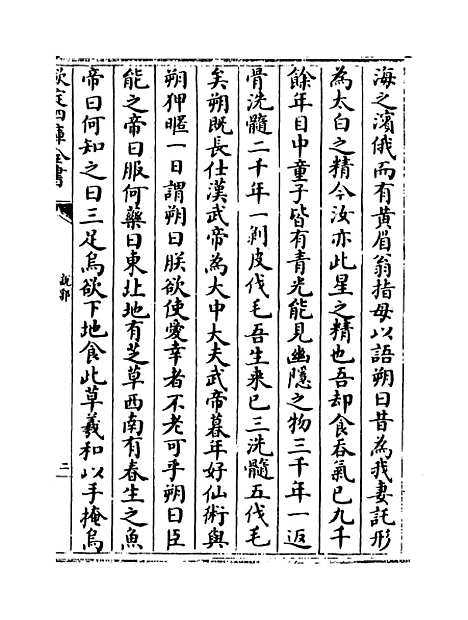 海之濱俄而有黃眉翁指母以語朔曰昔為我妻託形
為太白之精今汝亦此星之精也吾却食吞氣已九千
餘年目中童子皆有青光能見幽隱之物三千年一返
骨洗髓二千年一剥皮伐毛吾生来已三洗髓五伐毛
矣朔既長仕漢武帝為大中大夫武帝暮年好仙術與
朔狎暱一日謂朔曰朕欲使愛幸者不老可乎朔曰臣
能之帝曰服何藥曰東北地有芝草西南有春生之魚
帝曰何知之曰三足烏欲下地食此草羲和以手掩烏
欽定四庫全書
說郛
三